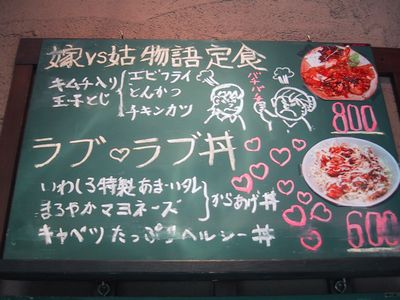 嫁vs姑物語定食
キムチ入り
玉子とじ
エビフライ
とんかつ
チキンカツ
バチバチ
800
ラブ♡ラブ丼
いわしろ特製あまいタレ
まろやかマヨネーズ
からあげ丼
キャベツたっぷりヘルシー丼
600